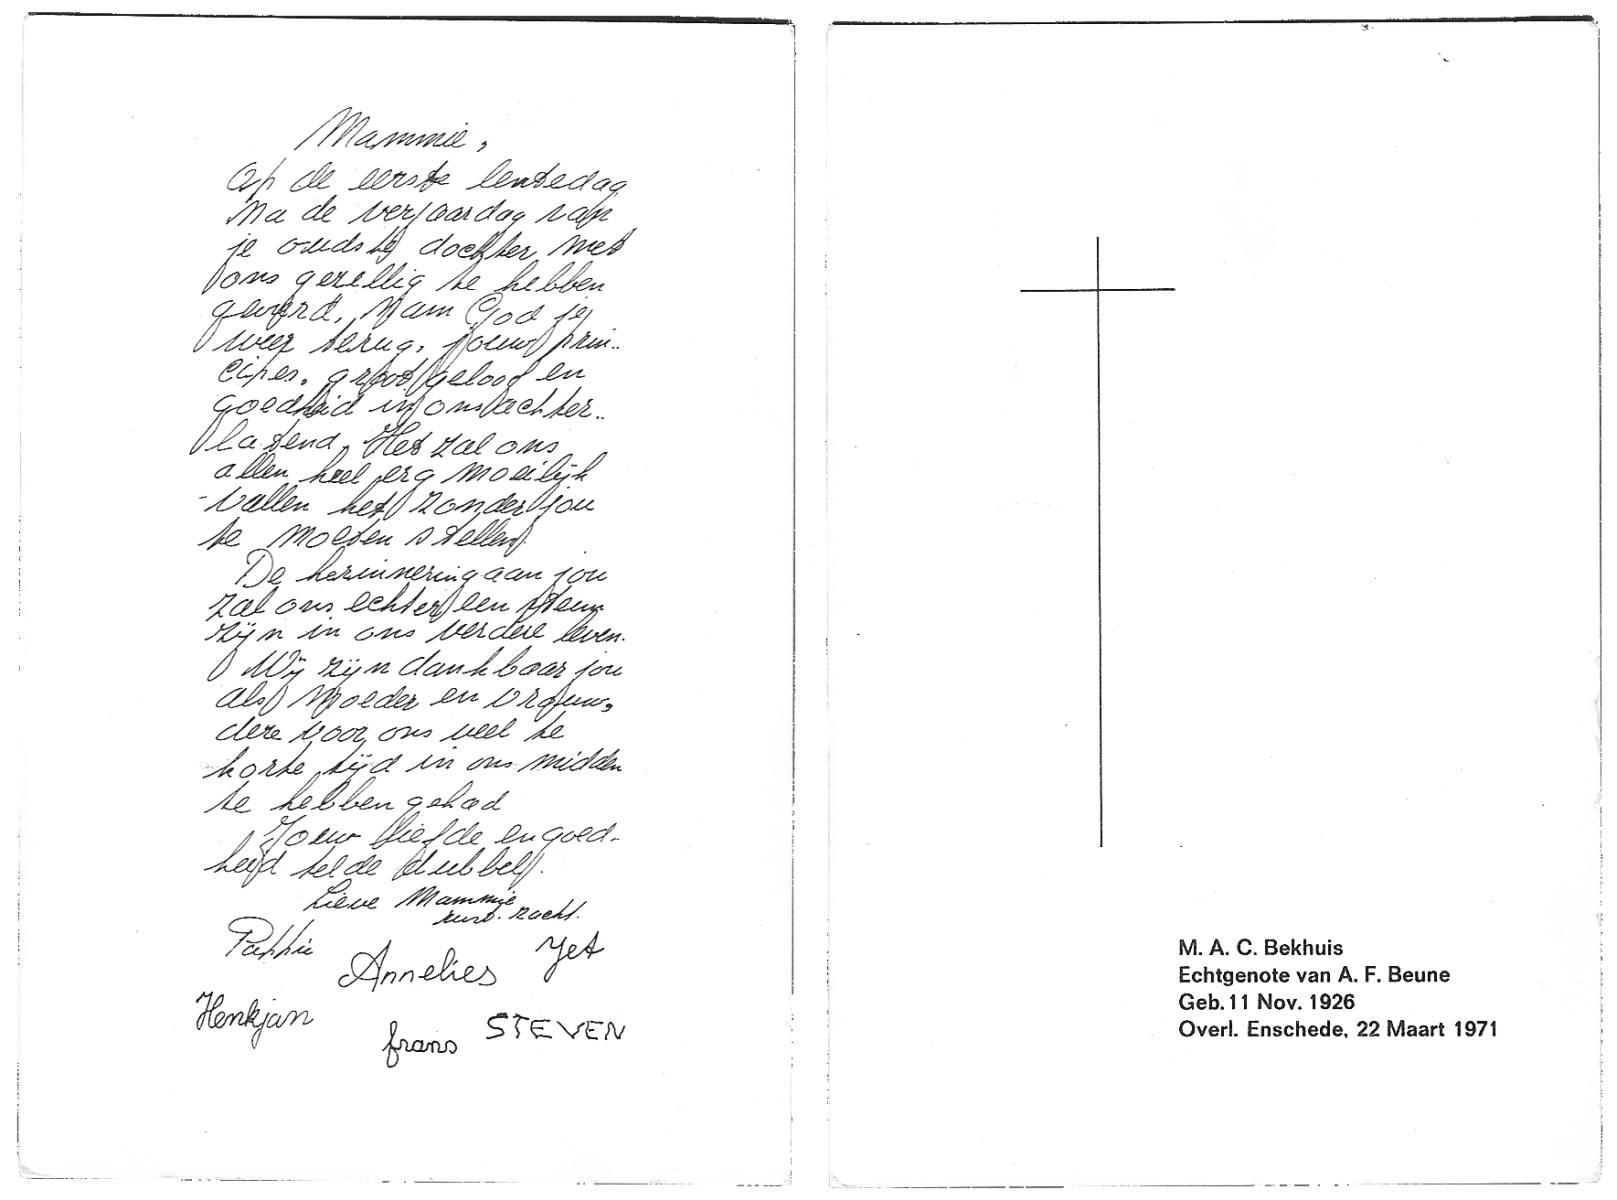 Mammie,
Op de eerste lentedag
na de verjaardag van
je oudste dochter met
ons gezellig te hebben
gevierd, nam God je
weer terug. jouw prin..
cipes, groot geloof en
goedheid in ons achter..
latend. Het zal ons
allen heel erg moeilijk
vallen het zonder jou
te moeten stellen.
De herinnering aan jou
zal ons echter een steun
zijn in ons verdere leven.
Wij zijn dankbaar jou
als moeder en vrouw,
deze voor ons veel te
korte tijd in ons midden
te hebben gehad
Jouw liefde en goed-
heid telde dubbel.
Lieve Mammie
rust. zacht.
Pappie
Annelies
Jet
Henkjan
frans
STEVEN
M. A. C. Bekhuis
Echtgenote van A. F. Beune
Geb. 11 Nov. 1926
Overl. Enschede, 22 Maart 1971